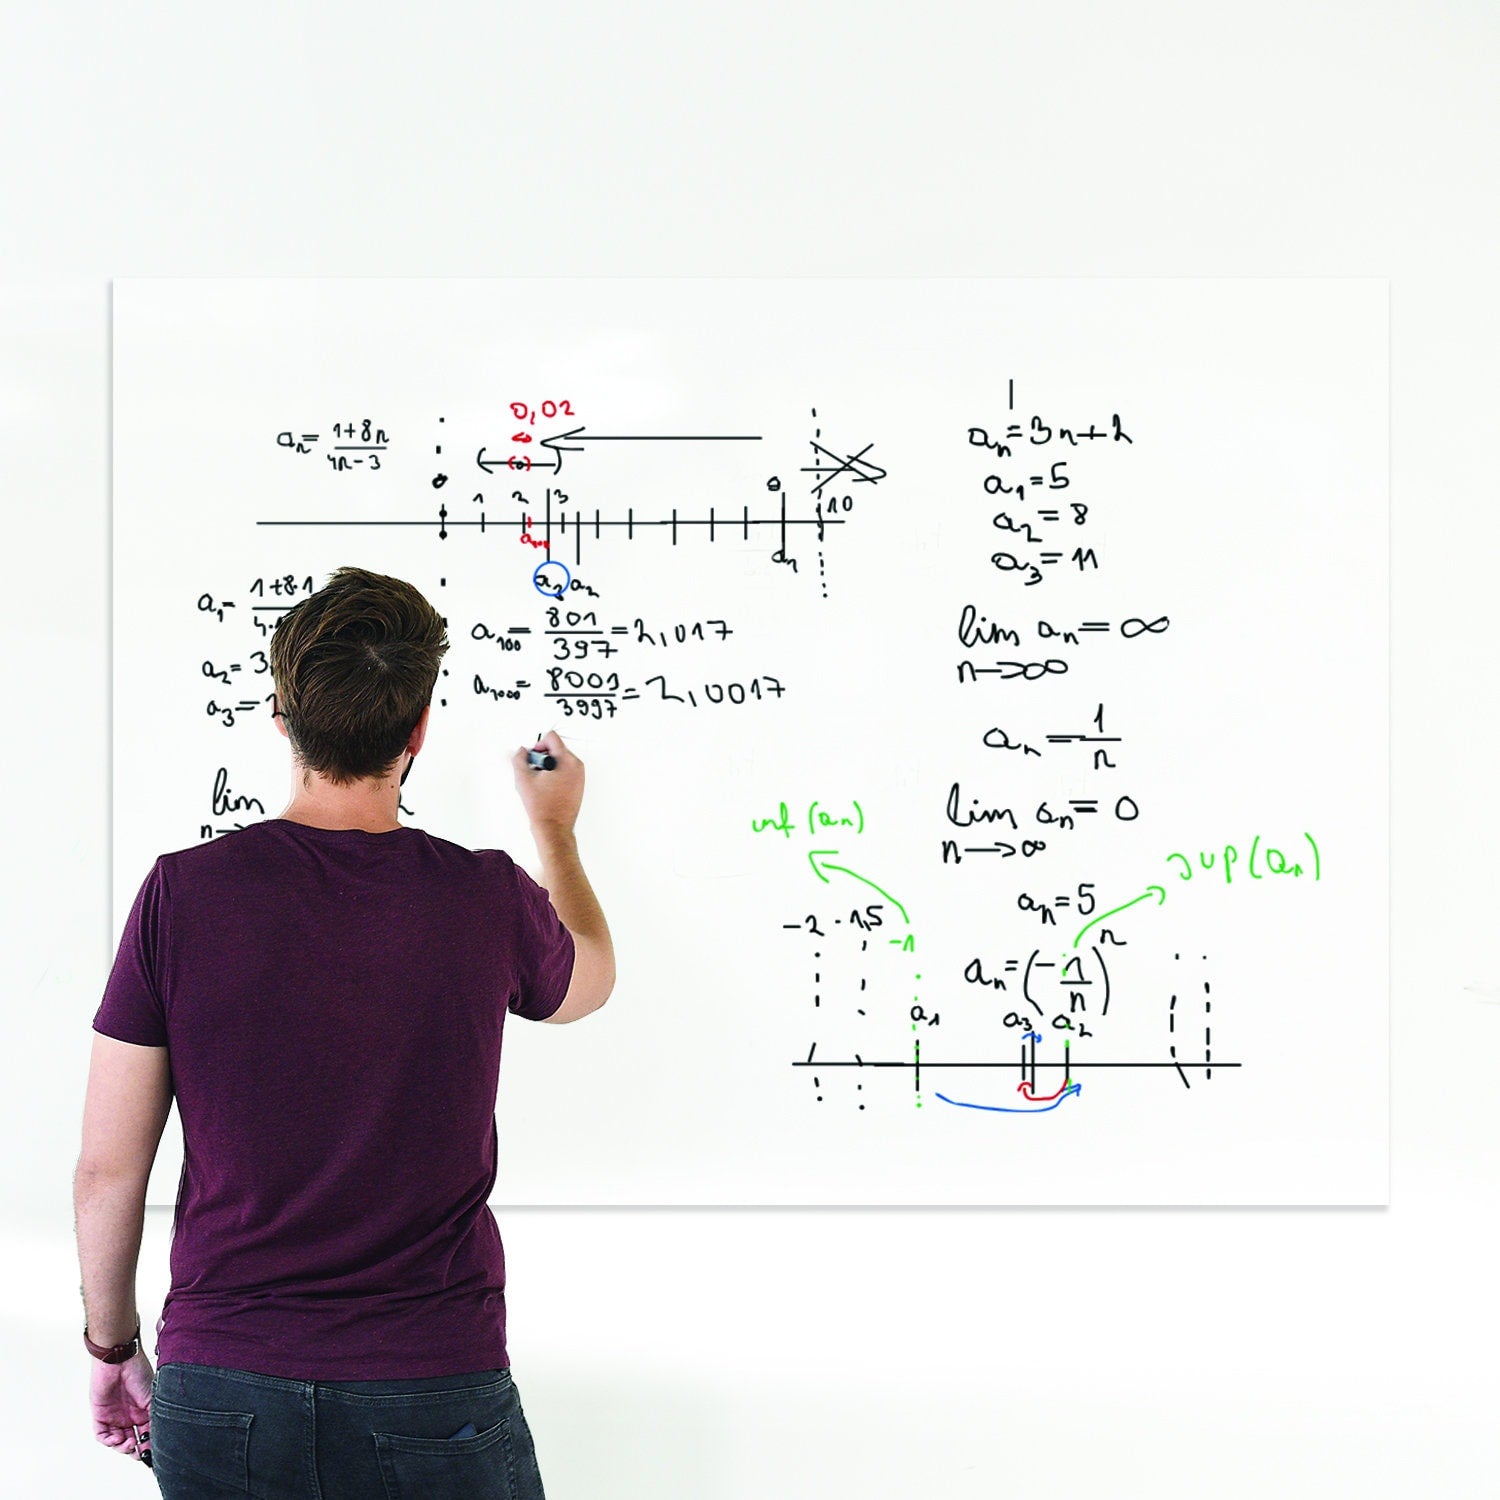 aₙ = (1+8n)/(4n-3)
0,02
0 1 2 3 9 10
a₁₀₀
a₃ a₂ a₁
a₁ = 1+8·1
a₂ = 3
a₃ =
a₁₀₀ = 801/397 = 2,017
a₁₀₀₀ = 8001/3997 = 2,0017
lim
n→
aₙ = 3n+2
a₁ = 5
a₂ = 8
a₃ = 11
lim aₙ = ∞
n→∞
aₙ = 1/n
lim aₙ = 0
n→∞
aₙ = 5
aₙ = (-1/n)ⁿ
inf (aₙ)
sup (aₙ)
-2 -1,5 -1
a₁ a₃ a₂